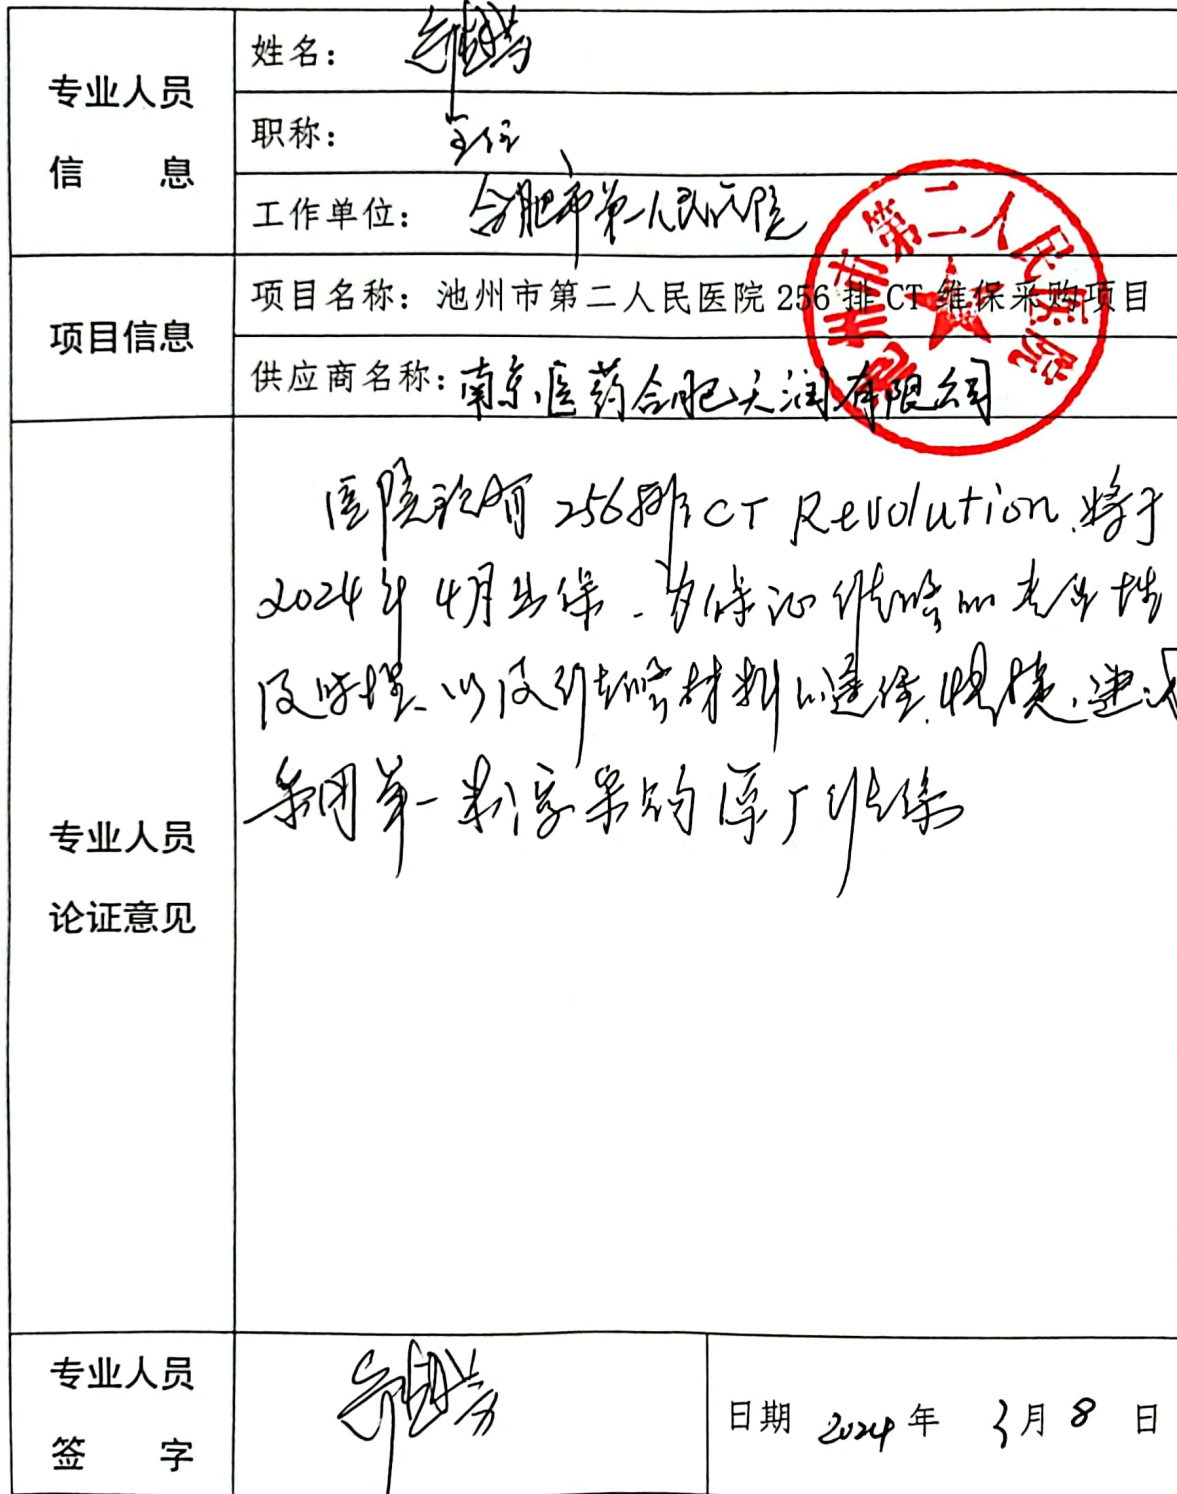 专业人员
信 息
姓名：
职称： 主任
工作单位： 合肥市第一人民医院
池州市第二人民医院
项目信息
项目名称：池州市第二人民医院 256 排 CT 维保采购项目
供应商名称：南京医药合肥天润有限公司
专业人员
论证意见
医院现有 256排 CT Revolution，将于
2024年 4月出保，为保证维修的
及时性、以及维修材料的 建议
采用单一来源采购原厂维保
专业人员
签 字
日期 2024 年 3 月 8 日